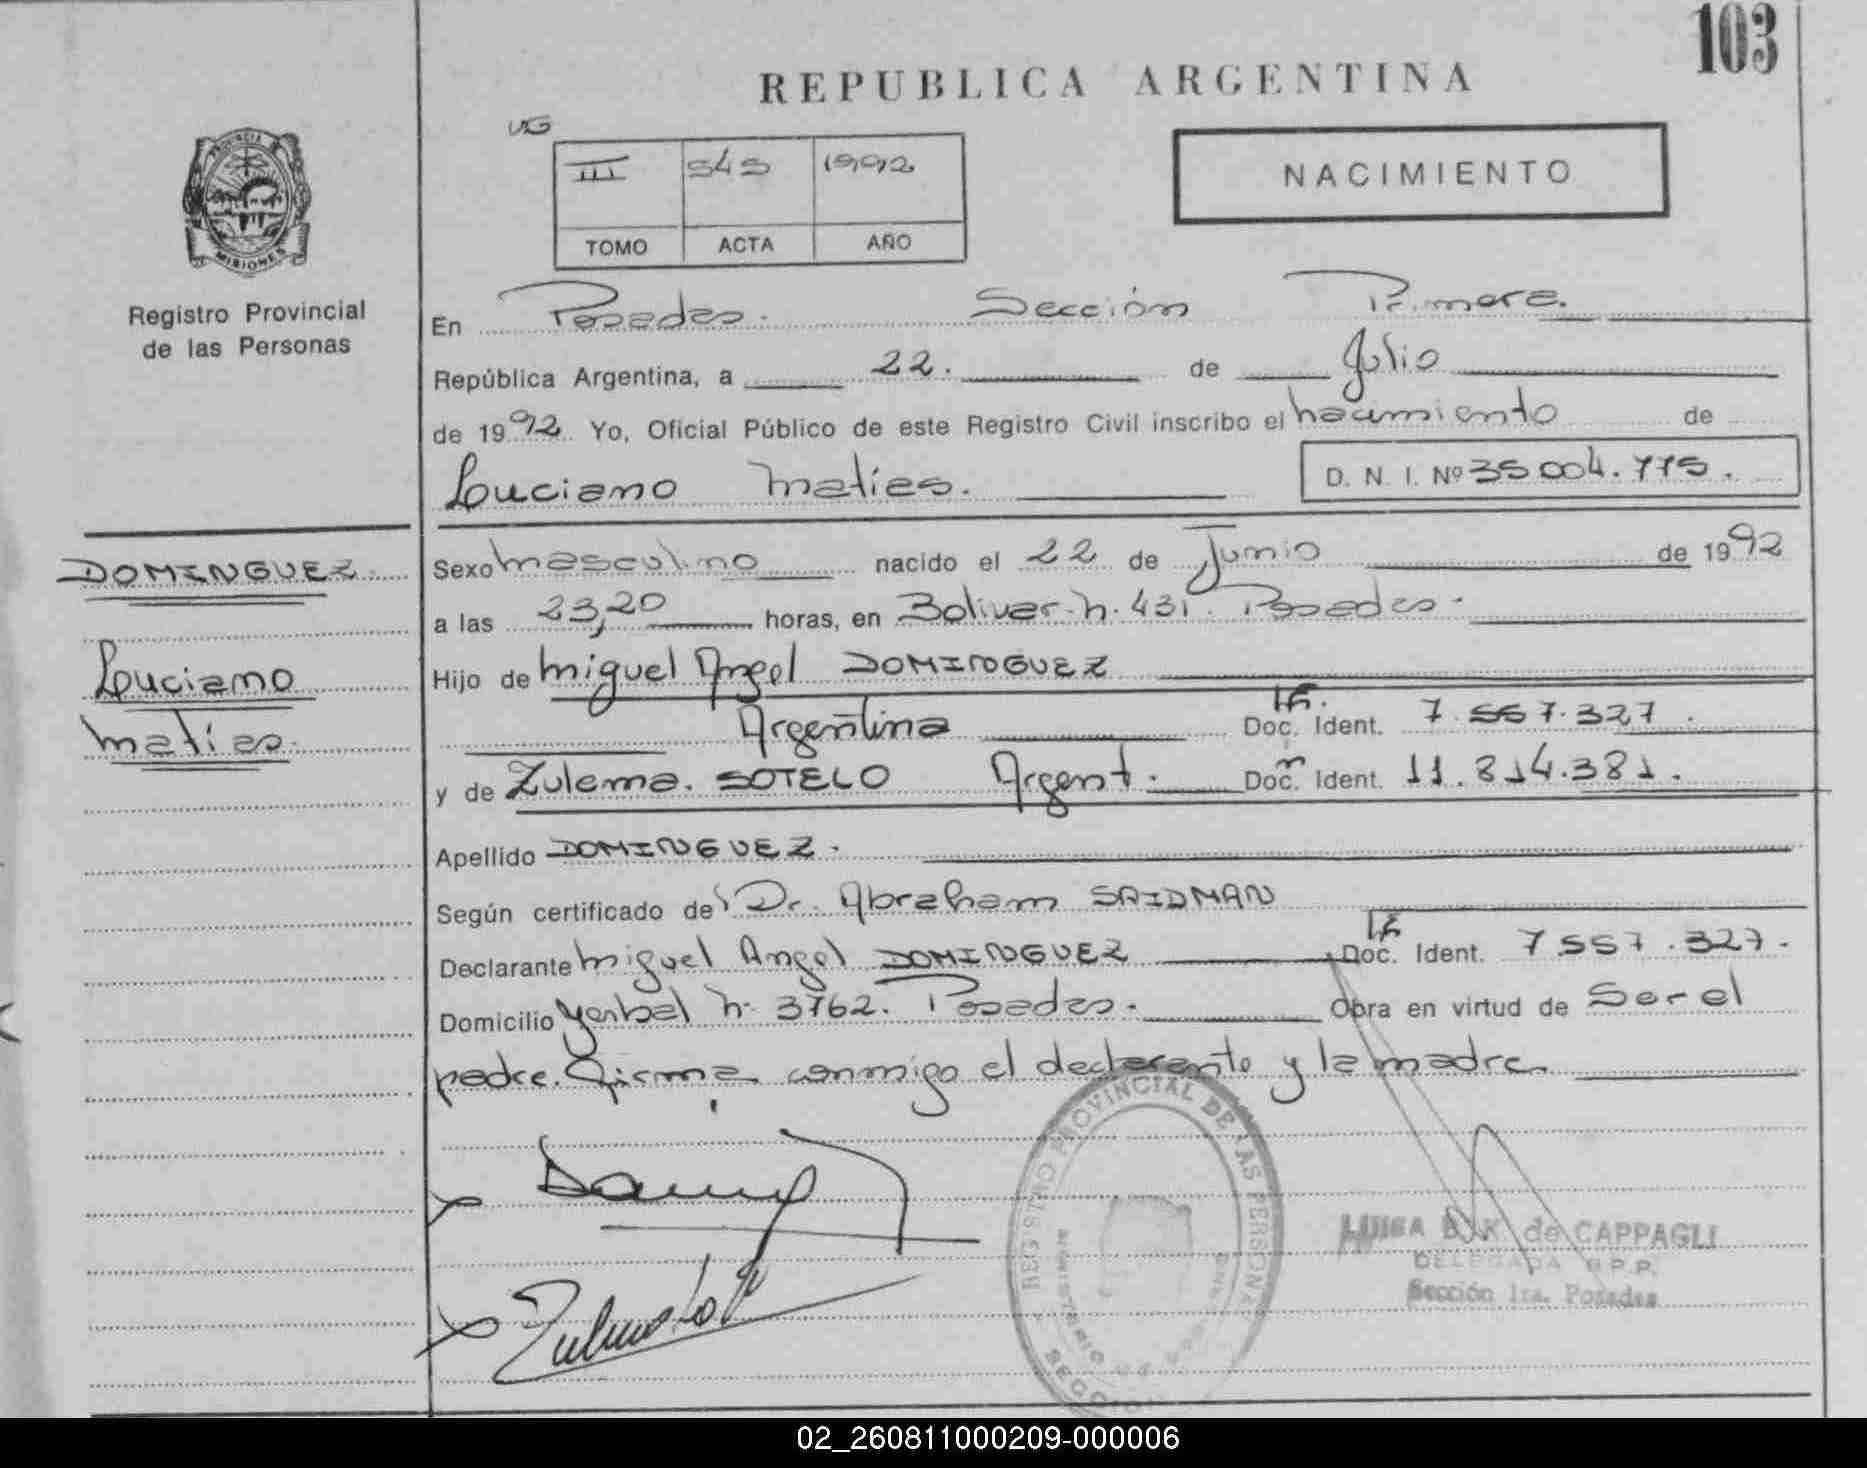 103
REPUBLICA ARGENTINA
III 545 1992
TOMO ACTA AÑO
NACIMIENTO
PROVINCIA DE
MISIONES
Registro Provincial
de las Personas
En Posadas. Sección Primera.
República Argentina, a 22. de Julio
de 1992 Yo, Oficial Público de este Registro Civil inscribo el nacimiento de
Luciano Matías. D. N. I. Nº 35004.775.
DOMINGUEZ
Luciano
Matías.
Sexo masculino nacido el 22 de Junio de 1992
a las 23,20 horas, en Bolivar n. 431. Posadas.
Hijo de Miguel Angel DOMINGUEZ
Argentina Doc. Ident. 7.557.327.
y de Zulema. SOTELO Argent. Doc. Ident. 11.814.381.
Apellido DOMINGUEZ.
Según certificado del Dr. Abraham SAIDMAN
Declarante Miguel Angel DOMINGUEZ Doc. Ident. 7557.327.
Domicilio Yerbal n. 3762. Posadas. Obra en virtud de Ser el
padre. Firma conmigo el declarante y la madre.
REGISTRO PROVINCIAL DE LAS PERSONAS
MINISTERIO DE GOBIERNO
SECCION
LUISA B. K de CAPPAGLI
DELEGADA R.P.P.
Sección 1ra. Posadas
02_260811000209-000006